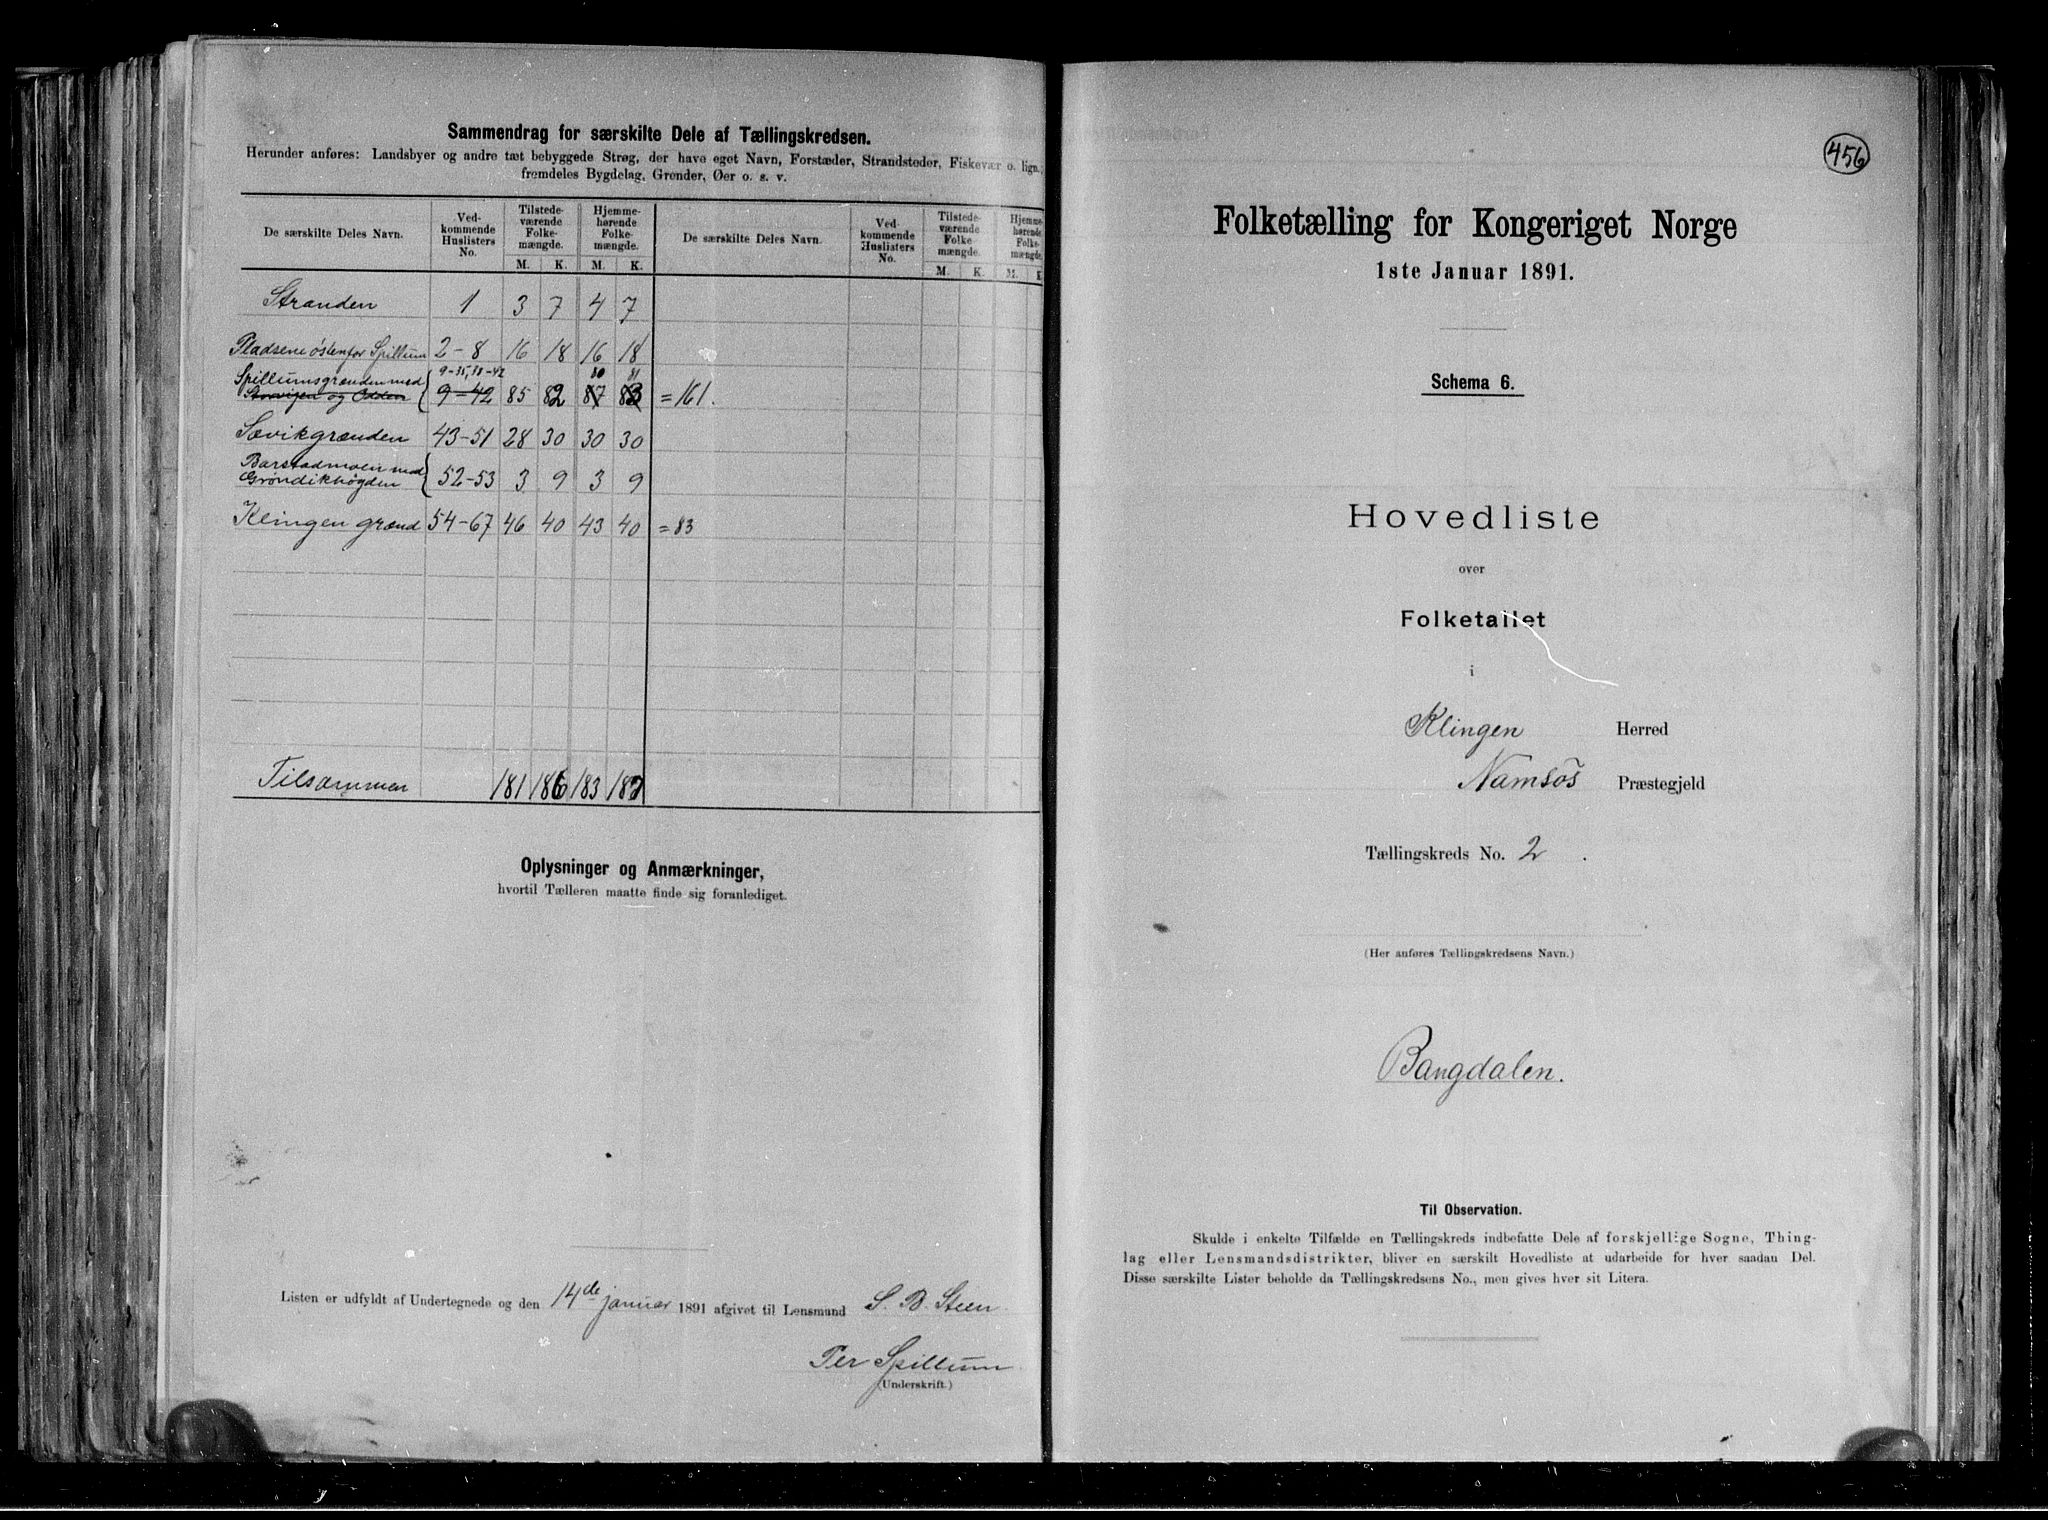 Sammendrag for særskilte Dele af Tællingskredsen.
Herunder anføres: Landsbyer og andre tæt bebyggede Strøg, der have eget Navn, Forstæder, Strandsteder, Fiskevær o. lign.,
fremdeles Bygdelag, Grender, Øer o. s. v.
De særskilte Deles Navn. Ved-kommende Huslisters No. Tilstede-værende Folke-mængde. Hjemme-hørende Folke-mængde. De særskilte Deles Navn. Ved-kommende Huslisters No. Tilstede-værende Folke-mængde. Hjemme-hørende Folke-mængde.
M. K. M. K. M. K. M. K.
Stranden 1 3 7 4 7
Pladsene östenfor Spillum 2-8 16 18 16 18
9-35, 38-42 80 81
Spillumsgrænden med
Storvigen og Odden 9-42 85 82 87 83 = 161.
Sævikgrænden 43-51 28 30 30 30
Barstadmoen med
Grøndikhøgden 52-53 3 9 3 9
Klingen grænd 54-67 46 40 43 40 = 83
Tilsammen 181 186 183 187
Oplysninger og Anmærkninger,
hvortil Tælleren maatte finde sig foranlediget.
Listen er udfyldt af Undertegnede og den 14de januar 1891 afgivet til Lensmand S. B. Steen
Per Spillum
(Underskrift.)
456
Folketælling for Kongeriget Norge
1ste Januar 1891.
Schema 6.
Hovedliste
over
Folketallet
i
Klingen Herred
Namsos Præstegjeld
Tællingskreds No. 2.
(Her anføres Tællingskredsens Navn.)
Bangdalen.
Til Observation.
Skulde i enkelte Tilfælde en Tællingskreds indbefatte Dele af forskjellige Sogne, Thing-
lag eller Lensmandsdistrikter, bliver en særskilt Hovedliste at udarbeide for hver saadan Del.
Disse særskilte Lister beholde da Tællingskredsens No., men gives hver sit Litera.